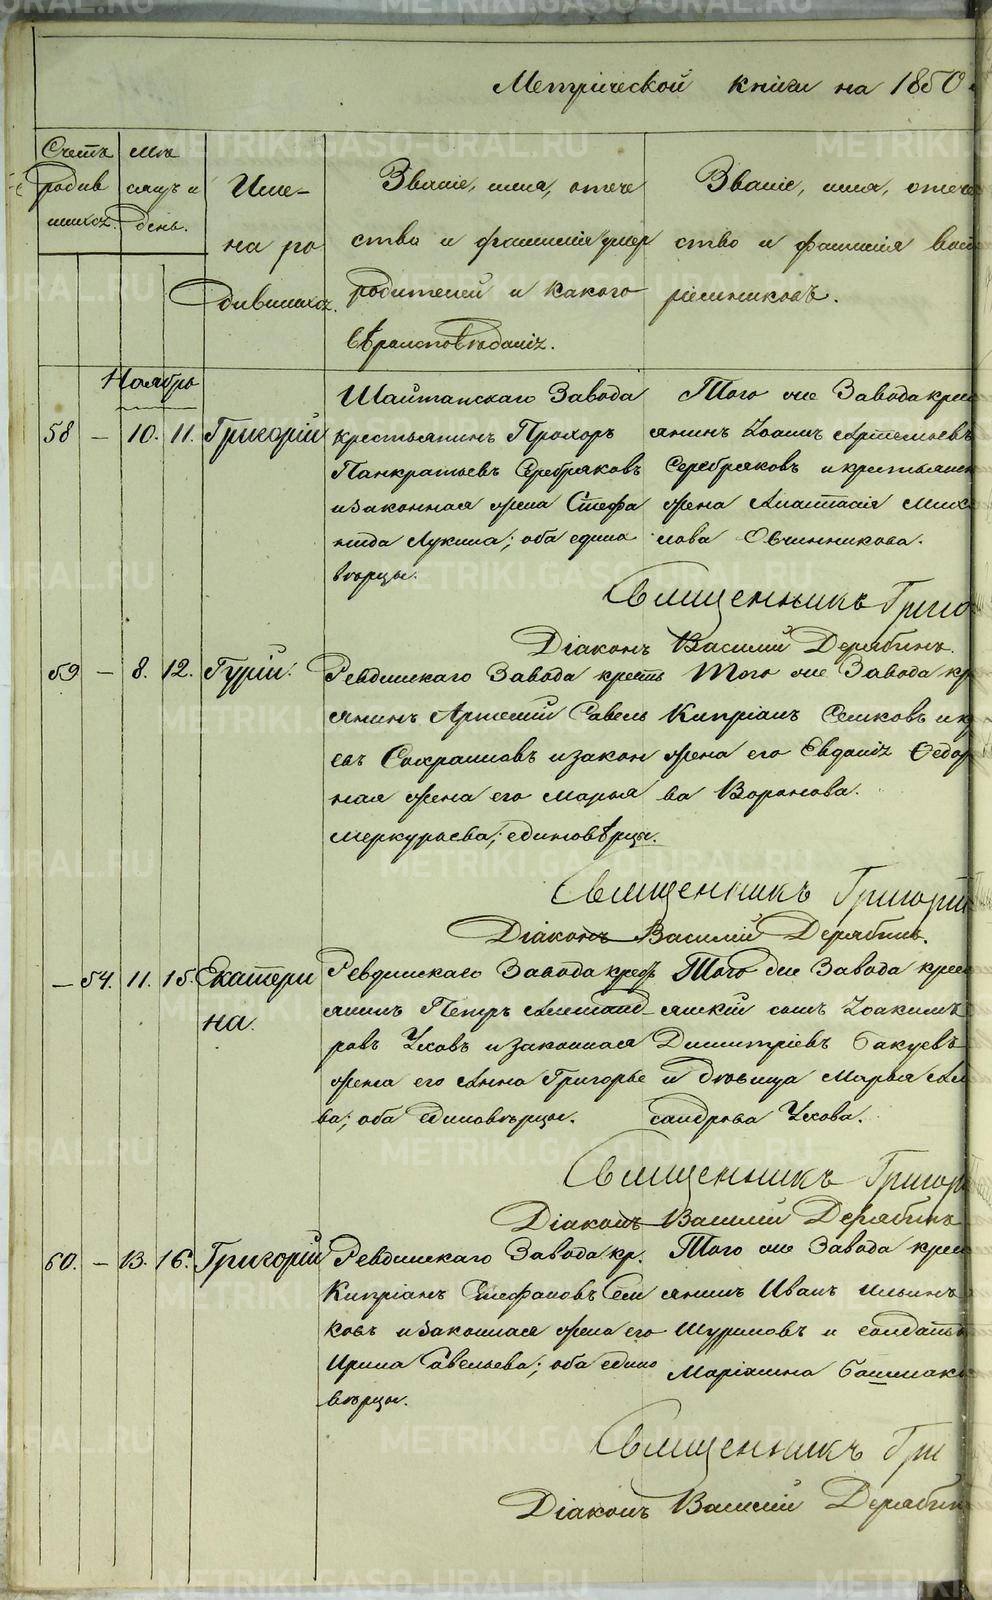 Метрической книги на 1850
Счетъ родив шихся.
Мѣ сяцъ и день.
Име- на ро дившихся.
Званіе, имя, отече ства и фамилія родителей и какого вѣроисповѣданія.
Званіе, имя, отече ство и фамилія вос пріемниковъ.
Ноябрь
58 — 10. 11. Григорій
Шайтанскаго Завода
крестьянинъ Прохоръ
Панкратьевъ Серебряковъ
и законная жена Стефа
нида Лукина; оба едино
вѣрцы.
Того же Завода крес
янинъ Іоаннъ Артемьевъ
Серебряковъ и крестьянск
жена Анастасія Миха
лова Овчинникова.
Священникъ Григо
Діаконъ Василій Дерябинъ.
59 — 8. 12. Гурій.
Ревдинскаго Завода кресть
янинъ Артемій Савель
евъ Сохрановъ и закон
ная жена его Марья
Меркурьева; единовѣрцы.
Того же Завода кр
Кипріанъ Семковъ и кр
жена его Евдокія Ѳедор
ва Воронова.
Священникъ Григорій
Діаконъ Василій Дерябинъ.
— 54. 11. 15. Екатери
на.
Ревдинскаго Завода крест
янинъ Петръ Александ
ровъ Уховъ и законная
жена его Анна Григорье
ва; оба единовѣрцы.
Того же Завода крес
янскій сынъ Іоакимъ
Димитріевъ Бакуевъ
и дѣвица Марья Ал
сандрова Ухова.
Священникъ Григор
Діаконъ Василій Дерябинъ
60. — 13. 16. Григорій
Ревдинскаго Завода кр.
Кипріанъ Стефановъ Сем
ковъ и законная жена его
Ирина Савельева; оба едино
вѣрцы.
Того же Завода крес
янинъ Иванъ Ильинъ
Шуриновъ и солдатк
Маріанна Башмако
Священникъ Гри
Діаконъ Василій Дерябин
METRIKI.GASO-URAL.RU